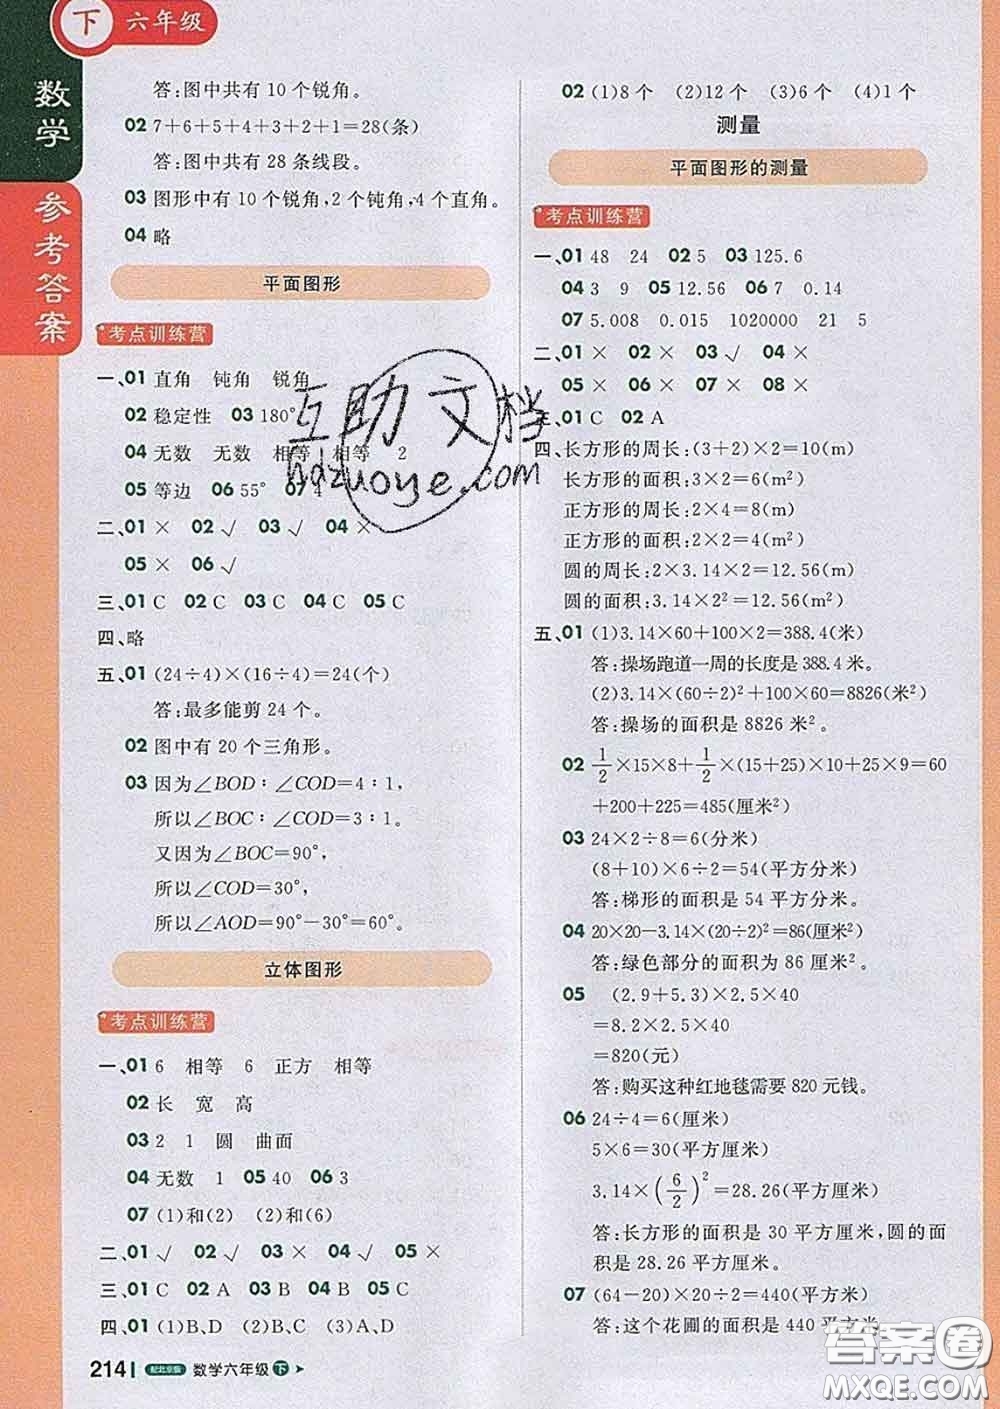 下 六年级
数学
参考答案
答:图中共有10个锐角。
02 7+6+5+4+3+2+1=28(条)
答:图中共有28条线段。
03 图形中有10个锐角,2个钝角,4个直角。
04 略
平面图形
考点训练营
一、01 直角 钝角 锐角
02 稳定性 03 180°
04 无数 无数 相等 相等 2
05 等边 06 55° 07 4
二、01 × 02 √ 03 √ 04 ×
05 × 06 √
三、01 C 02 C 03 C 04 C 05 C
四、略
五、01 (24÷4)×(16÷4)=24(个)
答:最多能剪24个。
02 图中有20个三角形。
03 因为∠BOD∶∠COD=4∶1,
所以∠BOC∶∠COD=3∶1。
又因为∠BOC=90°,
所以∠COD=30°,
所以∠AOD=90°-30°=60°。
立体图形
考点训练营
一、01 6 相等 6 正方 相等
02 长 宽 高
03 2 1 圆 曲面
04 无数 1 05 40 06 3
07 (1)和(2) (2)和(6)
二、01 √ 02 √ 03 × 04 √ 05 ×
三、01 C 02 A 03 B 04 B 05 A
四、01 (1)B、D (2)B、C (3)A、D
214 配北京版 数学六年级 下
02 (1)8个 (2)12个 (3)6个 (4)1个
测量
平面图形的测量
考点训练营
一、01 48 24 02 5 03 125.6
04 3 9 05 12.56 06 7 0.14
07 5.008 0.015 1020000 21 5
二、01 × 02 × 03 √ 04 ×
05 × 06 × 07 × 08 ×
01 C 02 A
四、长方形的周长:(3+2)×2=10(m)
长方形的面积:3×2=6(m²)
正方形的周长:2×4=8(m)
正方形的面积:2×2=4(m²)
圆的周长:2×3.14×2=12.56(m)
圆的面积:3.14×2²=12.56(m²)
五、01 (1)3.14×60+100×2=388.4(米)
答:操场跑道一周的长度是388.4米。
(2)3.14×(60÷2)²+100×60=8826(米²)
答:操场的面积是8826米²。
02 1/2×15×8+1/2×(15+25)×10+25×9=60
+200+225=485(厘米²)
03 24×2÷8=6(分米)
(8+10)×6÷2=54(平方分米)
答:梯形的面积是54平方分米。
04 20×20-3.14×(20÷2)²=86(厘米²)
答:绿色部分的面积为86厘米²。
05 (2.9+5.3)×2.5×40
=8.2×2.5×40
=820(元)
答:购买这种红地毯需要820元钱。
06 24÷4=6(厘米)
5×6=30(平方厘米)
3.14×(6/2)²=28.26(平方厘米)
答:长方形的面积是30平方厘米,圆的面
积是28.26平方厘米。
07 (64-20)×20÷2=440(平方米)
答:这个花圃的面积是440平方米
互助文档
hdzuoye.com
答案圈
MXQE.COM